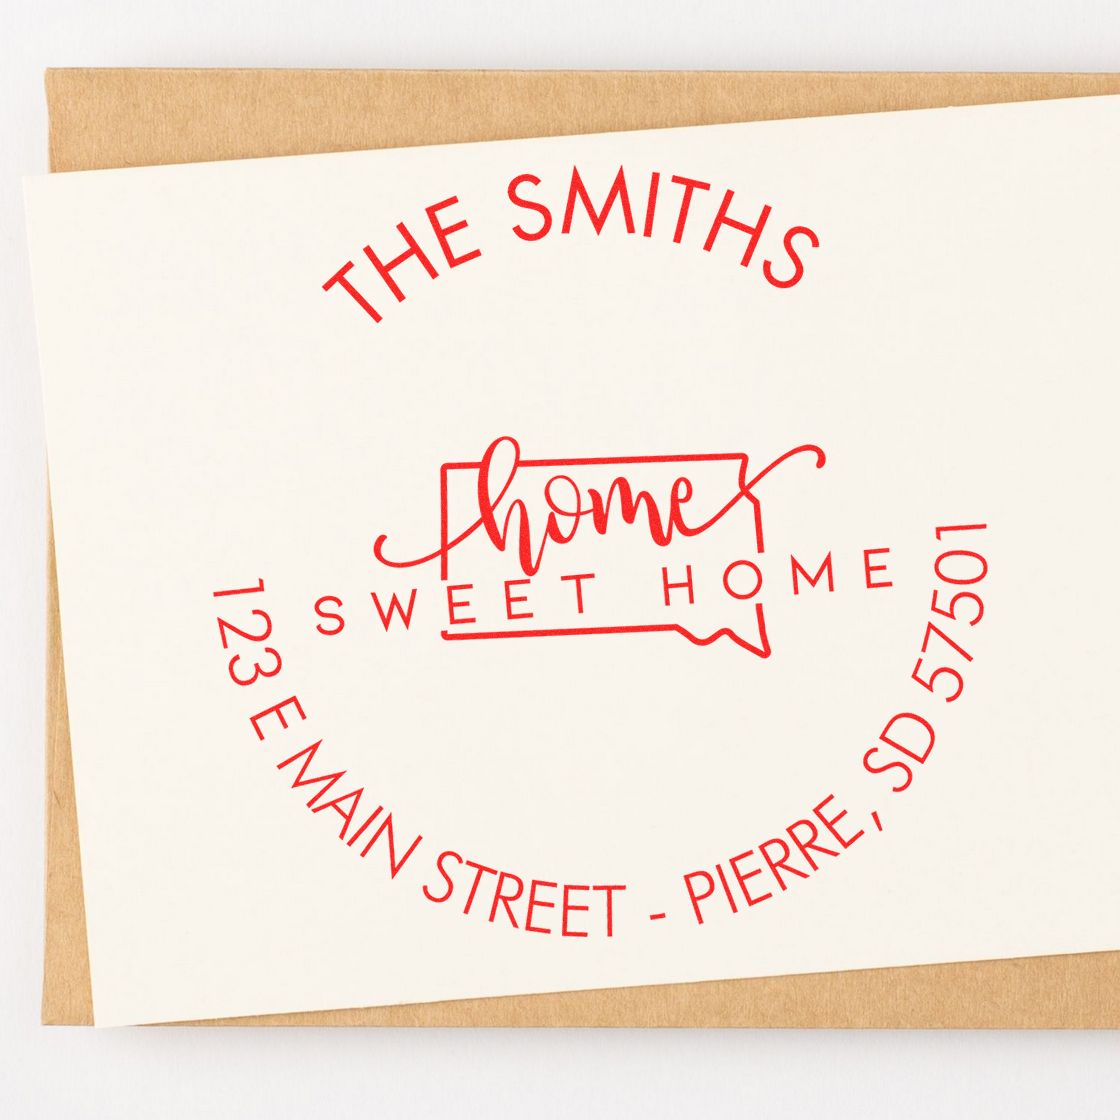 THE SMITHS
home
SWEET HOME
123 E MAIN STREET - PIERRE, SD 57501